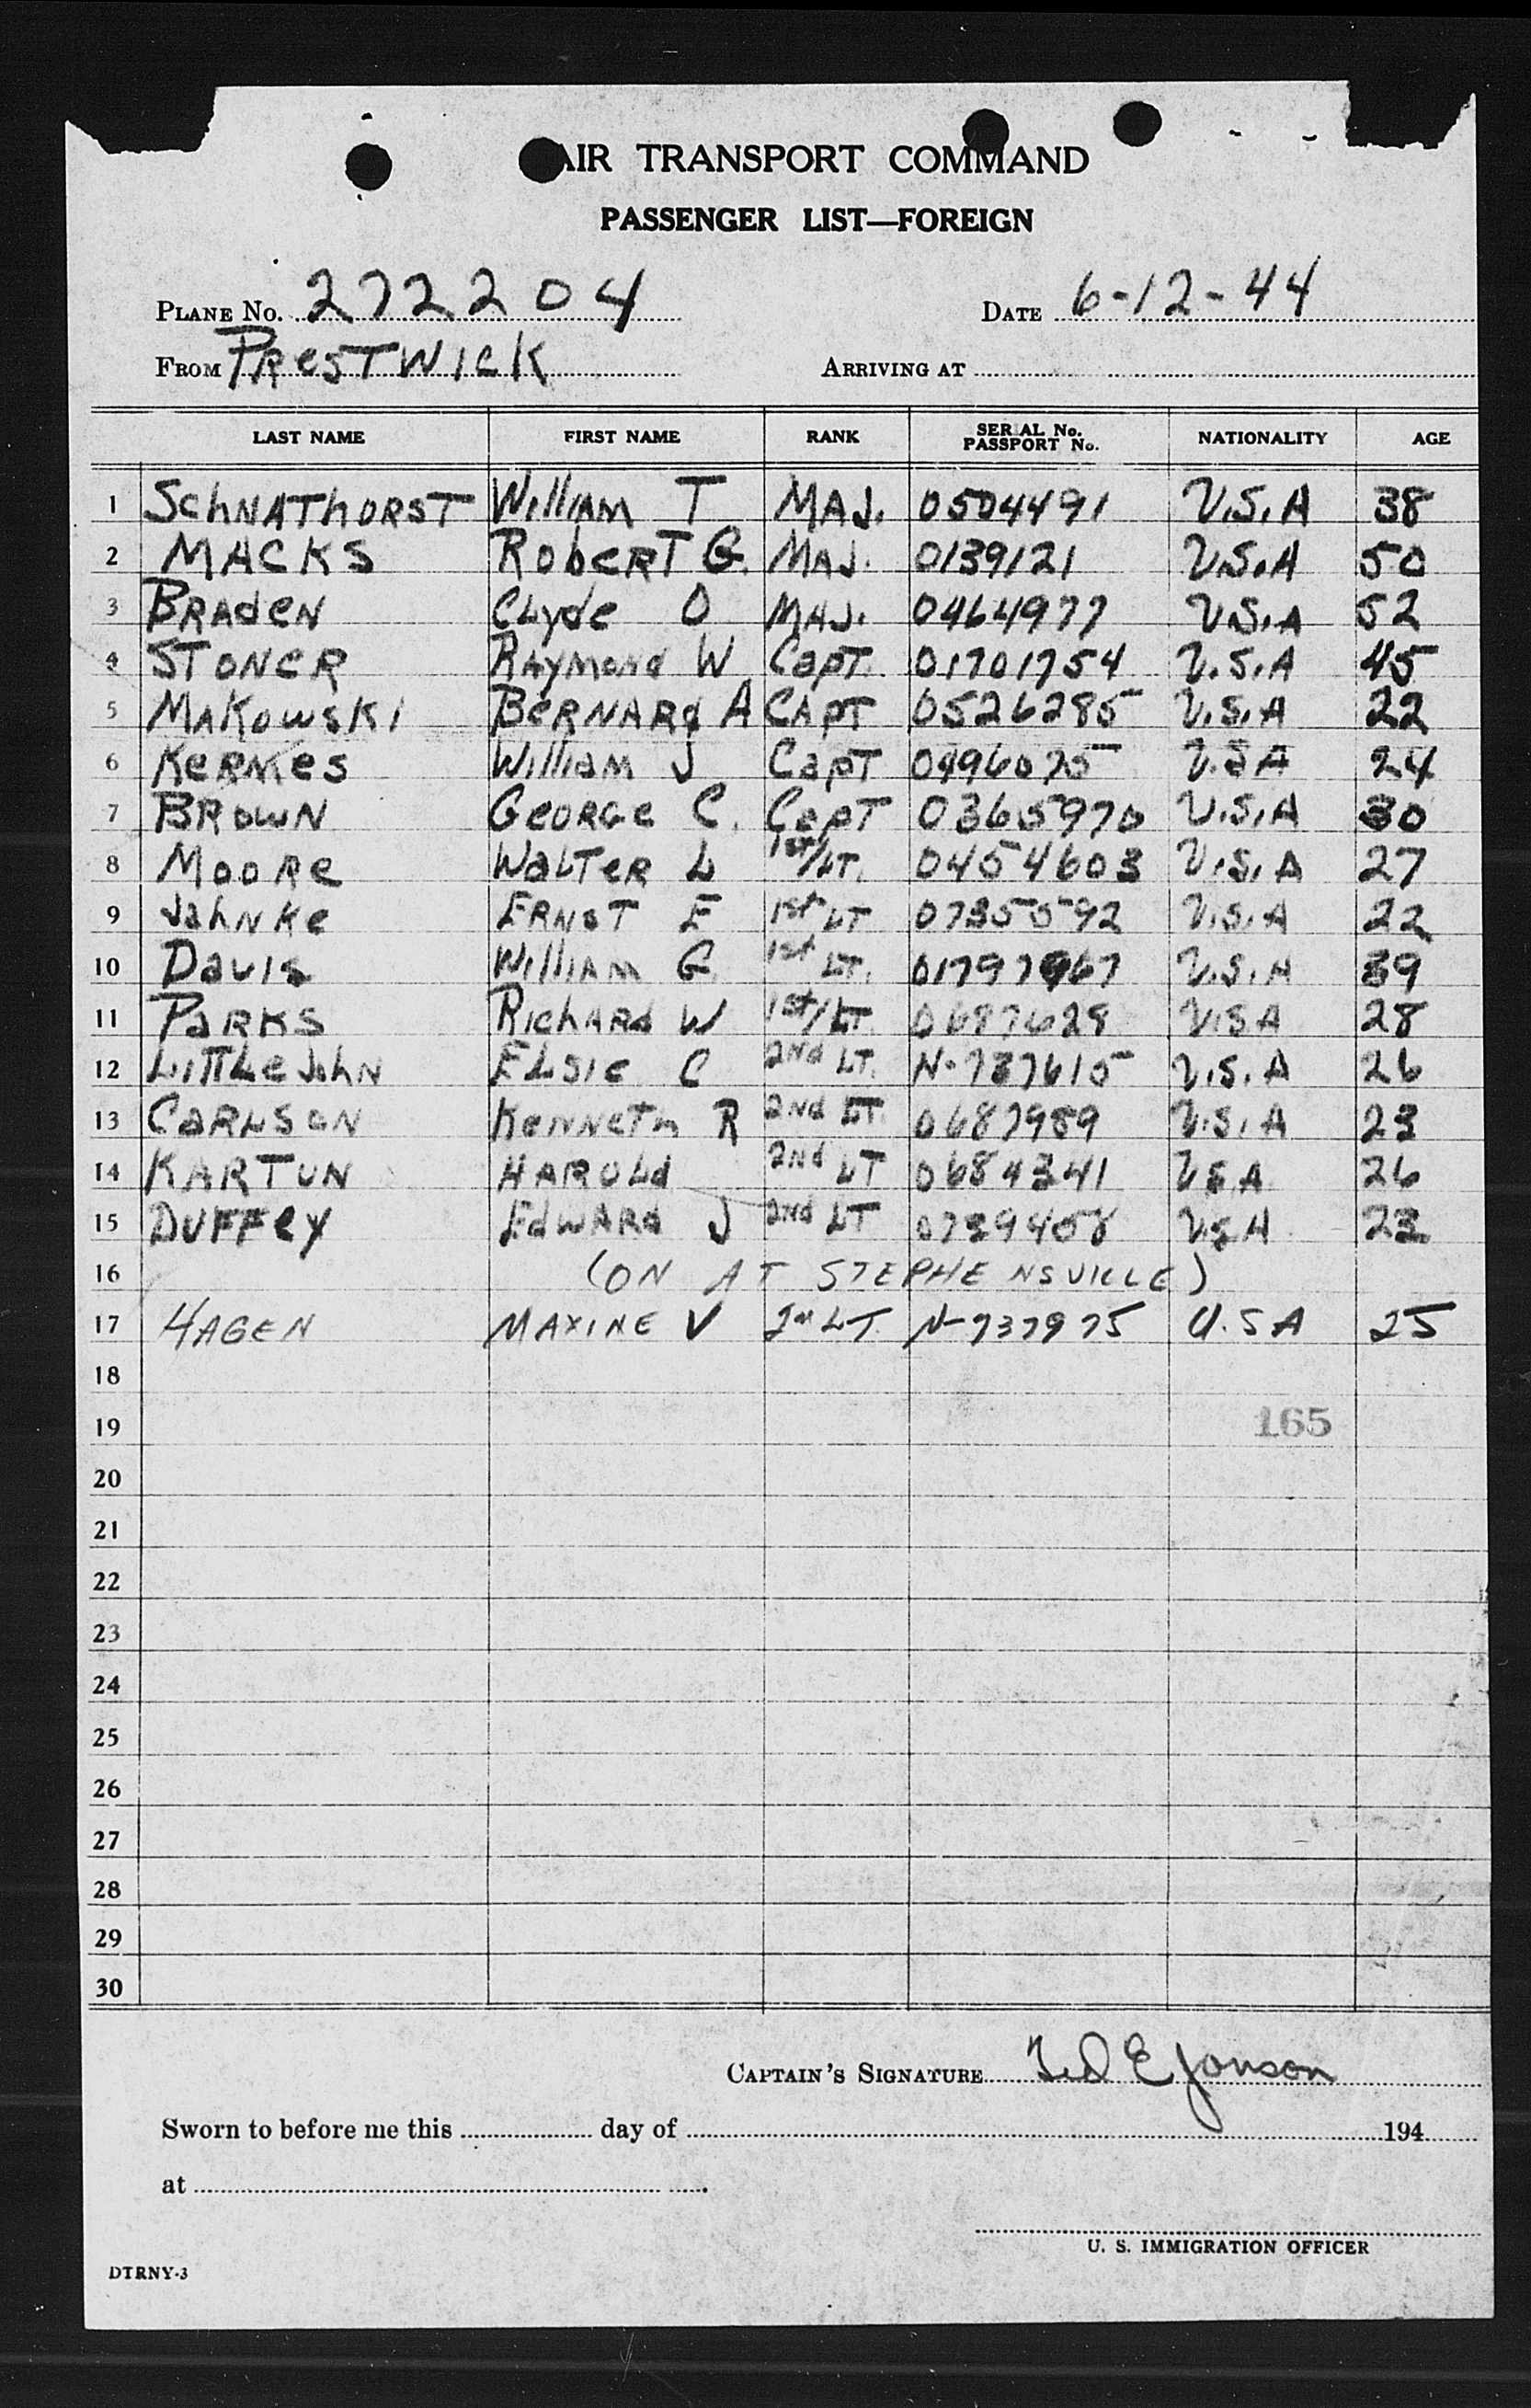 AIR TRANSPORT COMMAND
PASSENGER LIST—FOREIGN
PLANE No. 272204 DATE 6-12-44
FROM PRESTWICK ARRIVING AT
LAST NAME FIRST NAME RANK SERIAL No. PASSPORT No. NATIONALITY AGE
1 SCHNATHORST William T MAJ. 0504491 U.S.A 38
2 MACKS ROBERT G. MAJ. 0139121 U.S.A 50
3 BRADEN Clyde O MAJ. 0464977 U.S.A 52
4 STONER RAYMOND W Capt. 01701754 U.S.A 45
5 MAKOWSKI BERNARD A CAPT 0526285 U.S.A 22
6 KERNES William J Capt 0496075 U.S.A 24
7 BROWN GEORGE C. Capt 0365970 U.S.A 30
8 MOORE WALTER L 1st/LT. 0454603 U.S.A 27
9 JAHNKE ERNST E 1st LT 0735592 U.S.A 22
10 DAVIS WILLIAM G. 1st LT. 01797967 U.S.A 39
11 PARKS RICHARD W 1st/LT. 0687628 U.S.A 28
12 LITTLEJOHN ELSIE C 2nd LT. N-737615 U.S.A 26
13 CARLSON KENNETH R 2nd LT. 0687989 U.S.A 23
14 KARTUN HAROLD 2nd LT 0684341 U S A 26
15 DUFFEY EDWARD J 2nd LT 0739408 U S A 23
16 (ON AT STEPHENSVILLE)
17 HAGEN MAXINE V 2nd LT. N-737975 U.S A 25
18
19 165
20
21
22
23
24
25
26
27
28
29
30
CAPTAIN'S SIGNATURE Ted E Jonson
Sworn to before me this day of 194
at
U. S. IMMIGRATION OFFICER
DTRNY-3